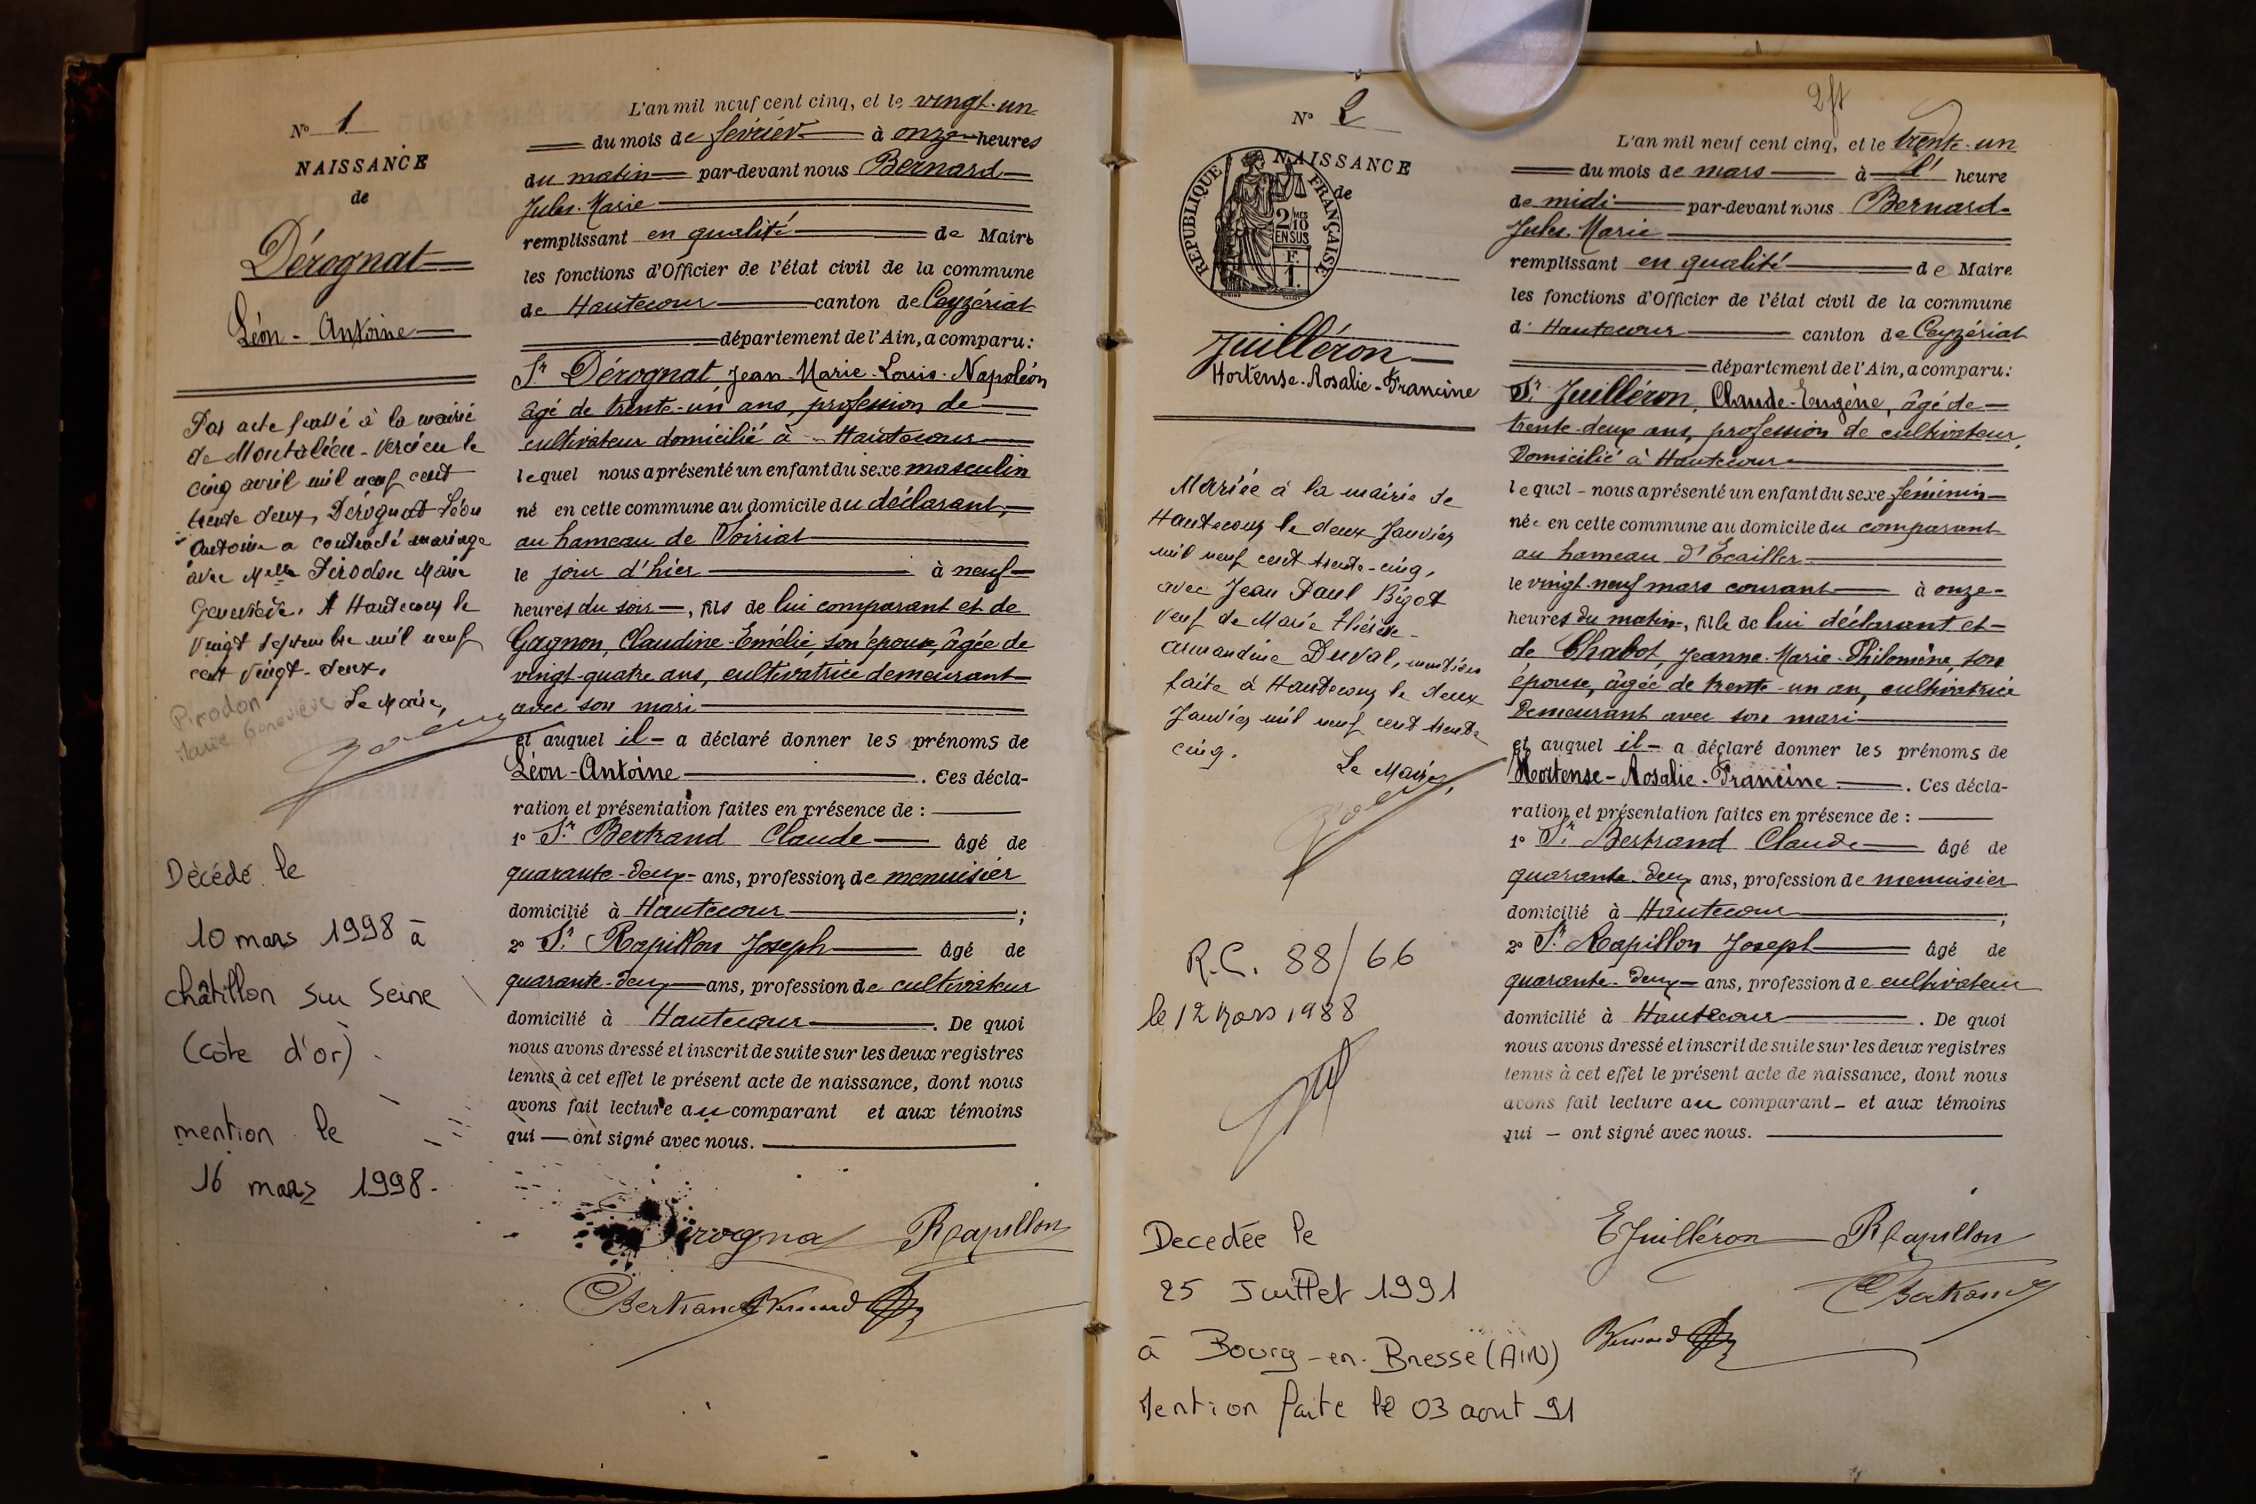 N° 1
NAISSANCE
de
Dérognat
Léon - Antoine
Par acte passé à la mairie
de Montalieu - Vercieu le
cinq avril mil neuf cent
trente deux, Dérognat Léon
Antoine a contracté mariage
avec Melle Pirodon Marie
Geneviève. A Hautecour le
vingt septembre mil neuf
cent vingt-deux.
Le Maire,
Pirodon
Marie Geneviève
Décédé le
10 mars 1998 à
châtillon sur Seine
(côte d'or).
mention le
16 mars 1998.
L'an mil neuf cent cinq, et le vingt-un
du mois de février à onze heures
du matin par-devant nous Bernard
Jules-Marie
remplissant en qualité de Maire
les fonctions d'Officier de l'état civil de la commune
de Hautecour canton de Ceyzériat
département de l'Ain, a comparu:
Sr Dérognat, Jean-Marie-Louis-Napoléon
âgé de trente-un ans, profession de
cultivateur domicilié à Hautecour
lequel nous a présenté un enfant du sexe masculin
né en cette commune au domicile du déclarant,
au hameau de Soiriat
le jour d'hier à neuf
heures du soir, fils de lui comparant et de
Gagnon, Claudine-Emélie, son épouse, âgée de
vingt-quatre ans, cultivatrice demeurant
avec son mari
et auquel il a déclaré donner les prénoms de
Léon-Antoine. Ces décla-
ration et présentation faites en présence de :
1° Sr Bertrand Claude âgé de
quarante-deux ans, profession de menuisier
domicilié à Hautecour ;
2° Sr Rapillon Joseph âgé de
quarante-deux ans, profession de cultivateur
domicilié à Hautecour. De quoi
nous avons dressé et inscrit de suite sur les deux registres
tenus à cet effet le présent acte de naissance, dont nous
avons fait lecture au comparant et aux témoins
qui ont signé avec nous.
Dérognat Rapillon
CBertrand Bernard
2 ft
N° 2
NAISSANCE
de
REPUBLIQUE FRANÇAISE
2/10 MES
EN SUS
F.
1.
Juilléron
Hortense-Rosalie-Francine
Mariée à la mairie de
Hautecour le deux Janvier
mil neuf cent trente-cinq,
avec Jean Paul Bégot
veuf de Marie Thérèse-
Armandine Duval, mention
faite à Hautecour le deux
Janvier mil neuf cent trente
cinq.
Le Maire,
R.C. 88/66
le 12 Mars 1988
Decedée le
25 Juillet 1991
à Bourg-en-Bresse (AIN)
Mention faite le 03 aout 91
L'an mil neuf cent cinq, et le trente-un
du mois de mars à l' heure
de midi par-devant nous Bernard
Jules Marie
remplissant en qualité de Maire
les fonctions d'Officier de l'état civil de la commune
d' Hautecour canton de Ceyzériat
département de l'Ain, a comparu:
Sr Juilléron, Claude-Eugène, âgé de
trente-deux ans, profession de cultivateur,
Domicilié à Hautecour
lequel nous a présenté un enfant du sexe féminin
née en cette commune au domicile du comparant
au hameau d'Ecailler
le vingt-neuf mars courant à onze
heures du matin, fille de lui déclarant et
de Chabot, Jeanne-Marie-Philomène, son
épouse, âgée de trente-un an, cultivatrice
Demeurant avec son mari
et auquel il a déclaré donner les prénoms de
Hortense-Rosalie-Francine. Ces décla-
ration et présentation faites en présence de :
1° Sr Bertrand Claude âgé de
quarante-deux ans, profession de menuisier
domicilié à Hautecour ;
2° Sr Rapillon Joseph âgé de
quarante-deux ans, profession de cultivateur
domicilié à Hautecour. De quoi
nous avons dressé et inscrit de suite sur les deux registres
tenus à cet effet le présent acte de naissance, dont nous
avons fait lecture au comparant et aux témoins
qui ont signé avec nous.
EJuilléron Rapillon
CBertrand
Bernard